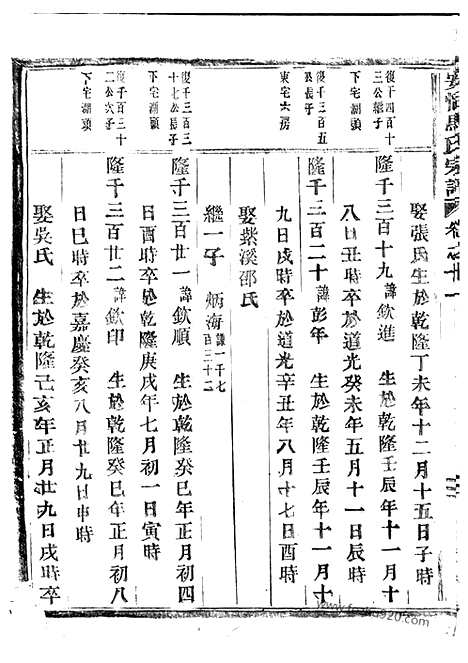 馬氏宗譜 卷之廿一
娶張氏生於乾隆丁未年十二月十五日子時
復千四百十三公繼子
下宅湖頭
隆千三百十九諱欽進 生於乾隆壬辰年十一月十
八日丑時卒於道光癸未年五月十一日辰時
復千三百五公長子
東宅六房
隆千三百二十諱彭年 生於乾隆壬辰年十一月十
九日戌時卒於道光辛丑年八月十七日酉時
娶紫溪邵氏
繼一子 炳海謙一千七百三十二
復千三百三十七公長子
下宅湖頭
隆千三百廿一諱欽順 生於乾隆癸巳年正月初四
日酉時卒於乾隆庚戌年七月初一日寅時
復千三百三十二公次子
下宅湖頭
隆千三百廿二諱欽印 生於乾隆癸巳年正月初八
日巳時卒於嘉慶癸亥八月廿九日申時
娶吳氏 生於乾隆己亥年正月廿九日戌時卒